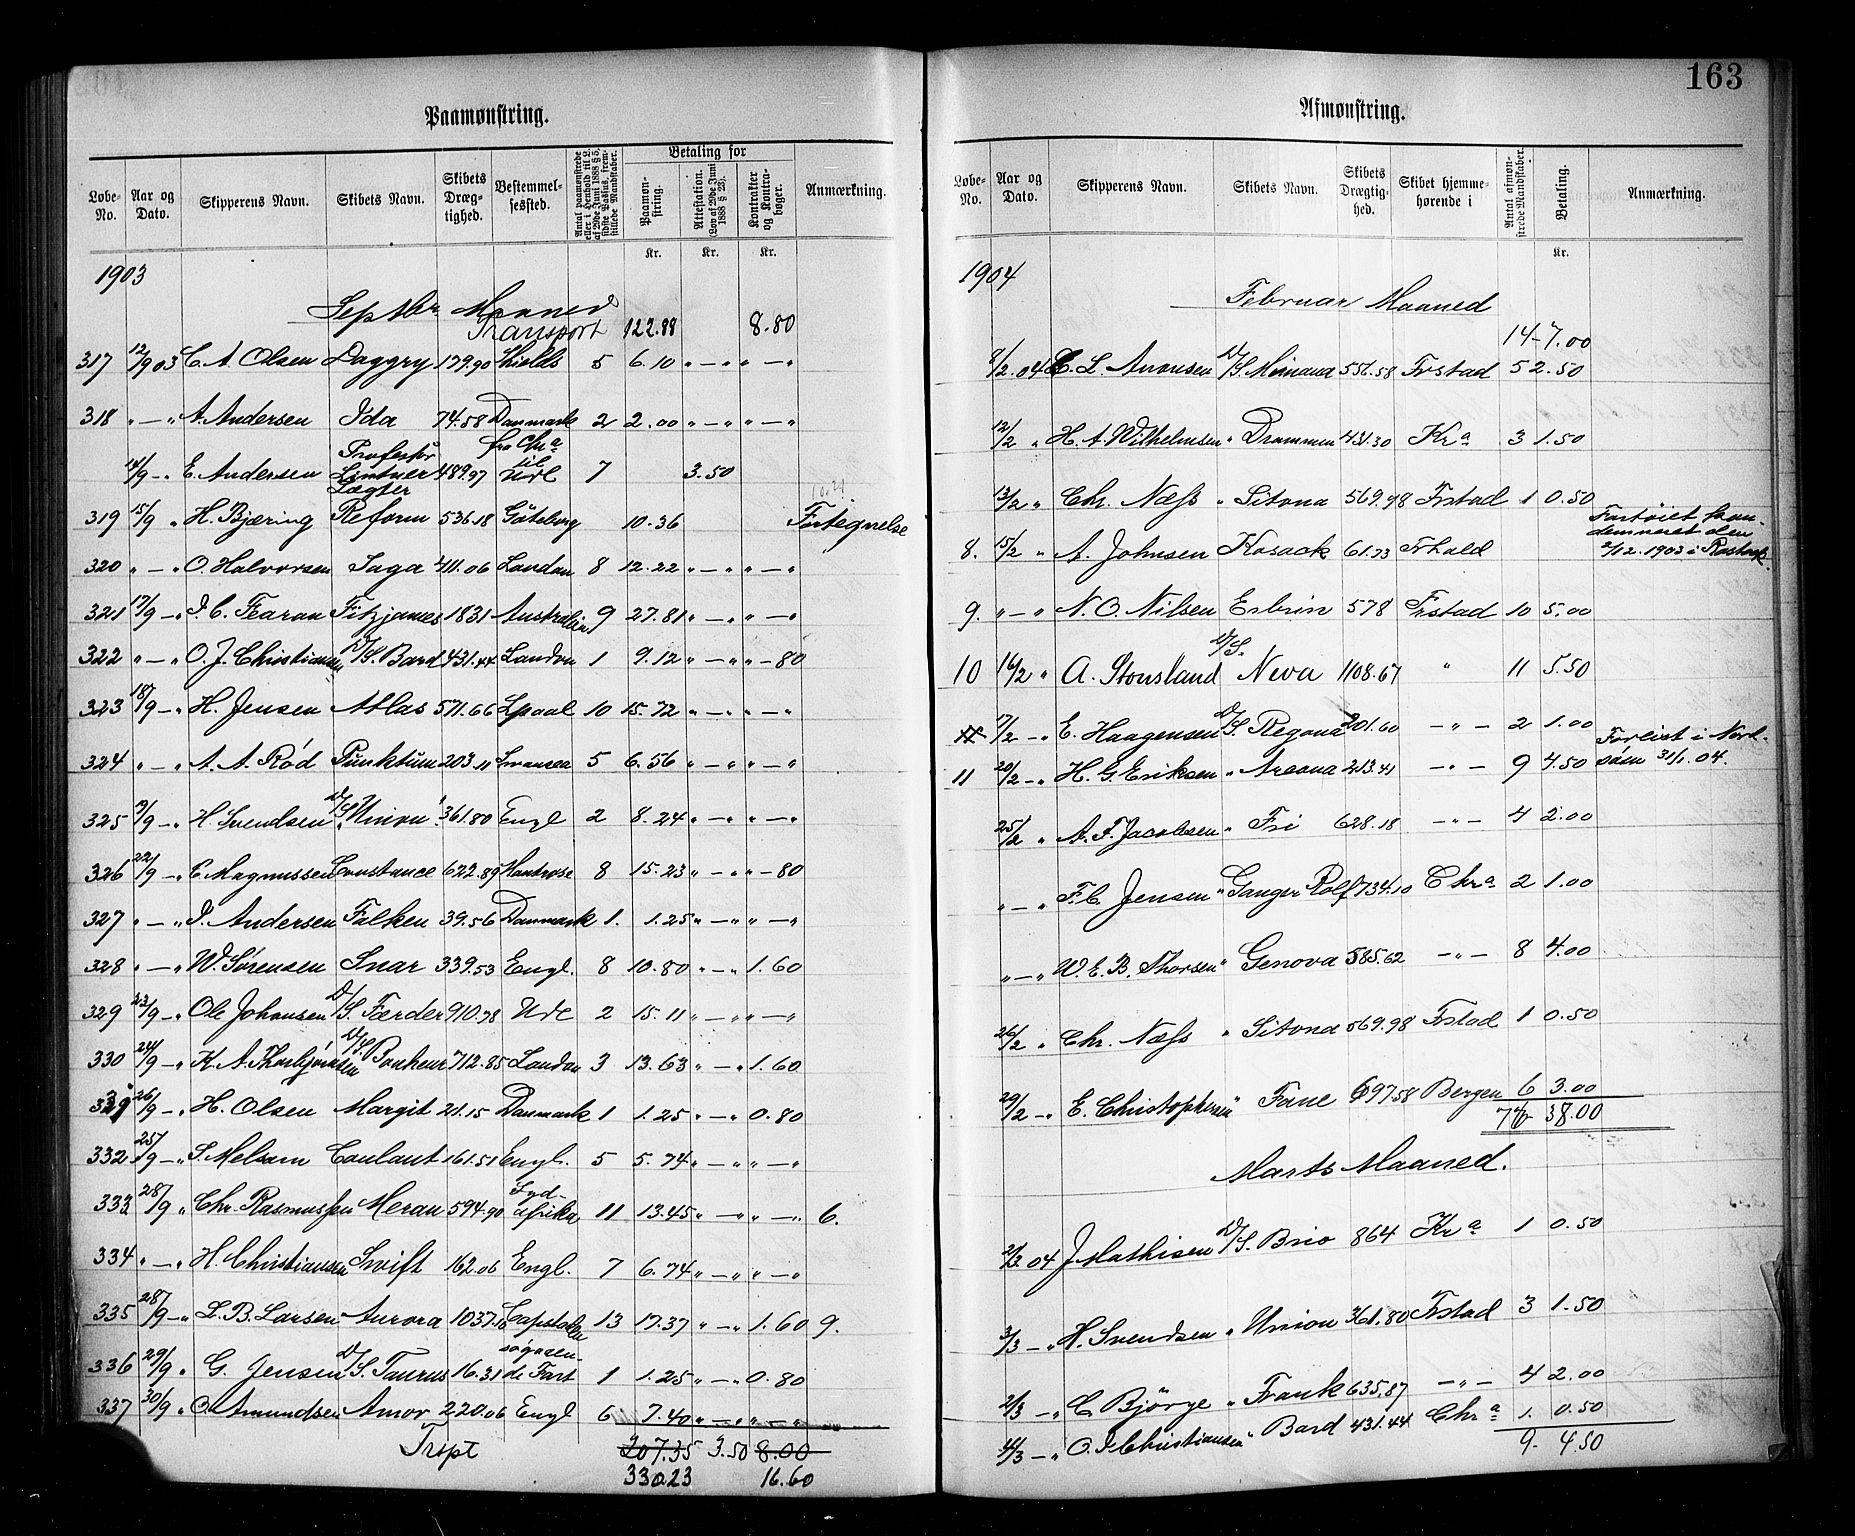 163
Paamønstring.
Løbe-No. Aar og Dato. Skipperens Navn. Skibets Navn. Skibets Dræg-tighed. Bestemmel-sessted. Antal paamønstrede eller i Henhold til 2. af 29de Juni 1888 § 5, sidste Passus, frem-stillede Mandskaber. Betaling for Paamøn-string. Attestation. (Lov af 29de Juni 1888 § 23). Kontrakter og Kontra-bøger. Anmærkning.
Kr. Kr. Kr.
1903
Septbr Maaned
Transport 122.88 8.80
317 12/9 03 C. A. Olsen Daggry 179.90 Shields 5 6.10 " — " " — "
318 " — " A. Andersen Ida 74.58 Danmark 2 2.00 " — " " — "
14/9 — " E. Andersen Professor Lintner Lægter 489.97 fra Chra til Udl 7 3.50
319 15/9 " H. Bjæring Reform 536.18 Göteborg 10.36 Fortegnelse
320 " — " O. Halvorsen Saga 411.06 London 8 12.22 " — " " — "
321 17/9 — " J. C. Fearon Fitzjames 1831 Australien 9 27.81 " — " " — "
322 " — " O. J. Christiansen D/S. Bard 431.44 London 1 9.12 " — " " — 80
323 18/9 — " H. Jensen Atlas 571.66 Lpool 10 15.72 " — " " — "
324 " — " A. A. Rød Punktum 203.11 Swansea 5 6.56 " — " " — "
325 9/9 — " H. Svendsen D/S. Union 361.80 Engl 2 8.24 " — " " — "
326 22/9 — " C. Magnussen Constance 622.89 Montrose 8 15.23 " — " " — 80
327 " — " J. Andersen Falken 39.56 Danmark 1. 1.25 " — " " — "
328 " — " W. Sørensen Snar 339.53 Engl. 8 10.80 " — " 1.60
329 23/9 — " Ole Johansen D/S. Færder 910.78 Udl 2 15.11 " — " " — "
330 24/9 — " K. A. Thorbjørnsen D/S. Bonheur 712.85 London 3 13.63 " — " 1.60
331 26/9 — " H. Olsen Margit 21.15 Danmark 1 1.25 " — " 0.80
332 25/9 — " S. Melsom Coulant 161.51 Engl. 5 5.74 " — " " — "
333 28/9 " Chr. Rasmussen Meran 594.90 Syd-afrika 11 13.45 " — " " — " 6.
334 " — " H. Christiansen Swift 162.06 Engl. 7 6.74 " — " " — "
335 28/9 — " L. B. Larsen Aurora 1037.10 13 17.37 " — " 1.60 9.
336 29/9 " G. Jensen D/S. Taurus 16.31 søgaaen-de Fart 1 1.25 " — " 0.80
337 30/9 " O. Amundsen Amor 220.06 Engl 6 7.40 " — " " — "
Trspt 207.35 3.50 8.00
330.23 16.60
Afmønstring.
Løbe-No. Aar og Dato. Skipperens Navn. Skibets Navn. Skibets Drægtig-hed. Skibet hjemme-hørende i Antal afmøn-strede Mandskaber. Betaling. Anmærkning.
Kr.
1904
Februar Maaned
14 - 7.00
8/2. 04 C. L. Aronsen D/S. Mimona 556.58 Frstad 5 2.50
12/2 " H. A. Wilhelmsen " Drammen 431.30 Kra 3 1.50
13/2 " Chr. Næss " Sitona 569.98 Frstad 1 0.50
8. 15/2 " A. Johnsen Kosack 61.73 Frhald Fartøiet kon-demneret den 2/12. 1903 i Rostock.
9. " — " N. O. Nilsen Erbrin 578 Frstad 10 5.00
10 16/2 " A. Stousland D/S. Neva 1108.67 " 11 5.50
17/2 — " E. Haagensen D/S. Regona 201.60 — " — 2 1.00
11 20/2 — " H. G. Eriksen " Areona 213.41 — " — 9 4.50 Forlist i Nord-søen 31/1. 04.
25/2 " A. F. Jacobsen " Fri 628.18 — " — 4 2.00
" — " F. C. Jensen " Ganger Rolf 734.10 Chra 2 1.00
" — " W. E. B. Thorsen " Genova 585.62 — " — 8 4.00
26/2 " Chr. Næss " Sitona 569.98 Frstad 1 0.50
29/2 — " E. Christophersen " Fane 697.58 Bergen 6 3.00
76 38.00
Marts Maaned.
2/3. 04 J. Mathisen D/S. Brio 864 Kra 1 0.50
3/3 — " H. Svendsen " Union 361.80 Frstad 3 1.50
2/3 — " C. Bjørge " Frank 635.87 — " — 4 2.00
4/3 — " O. J. Christiansen " Bard 431.44 Chra 1. 0.50
9. 4.50